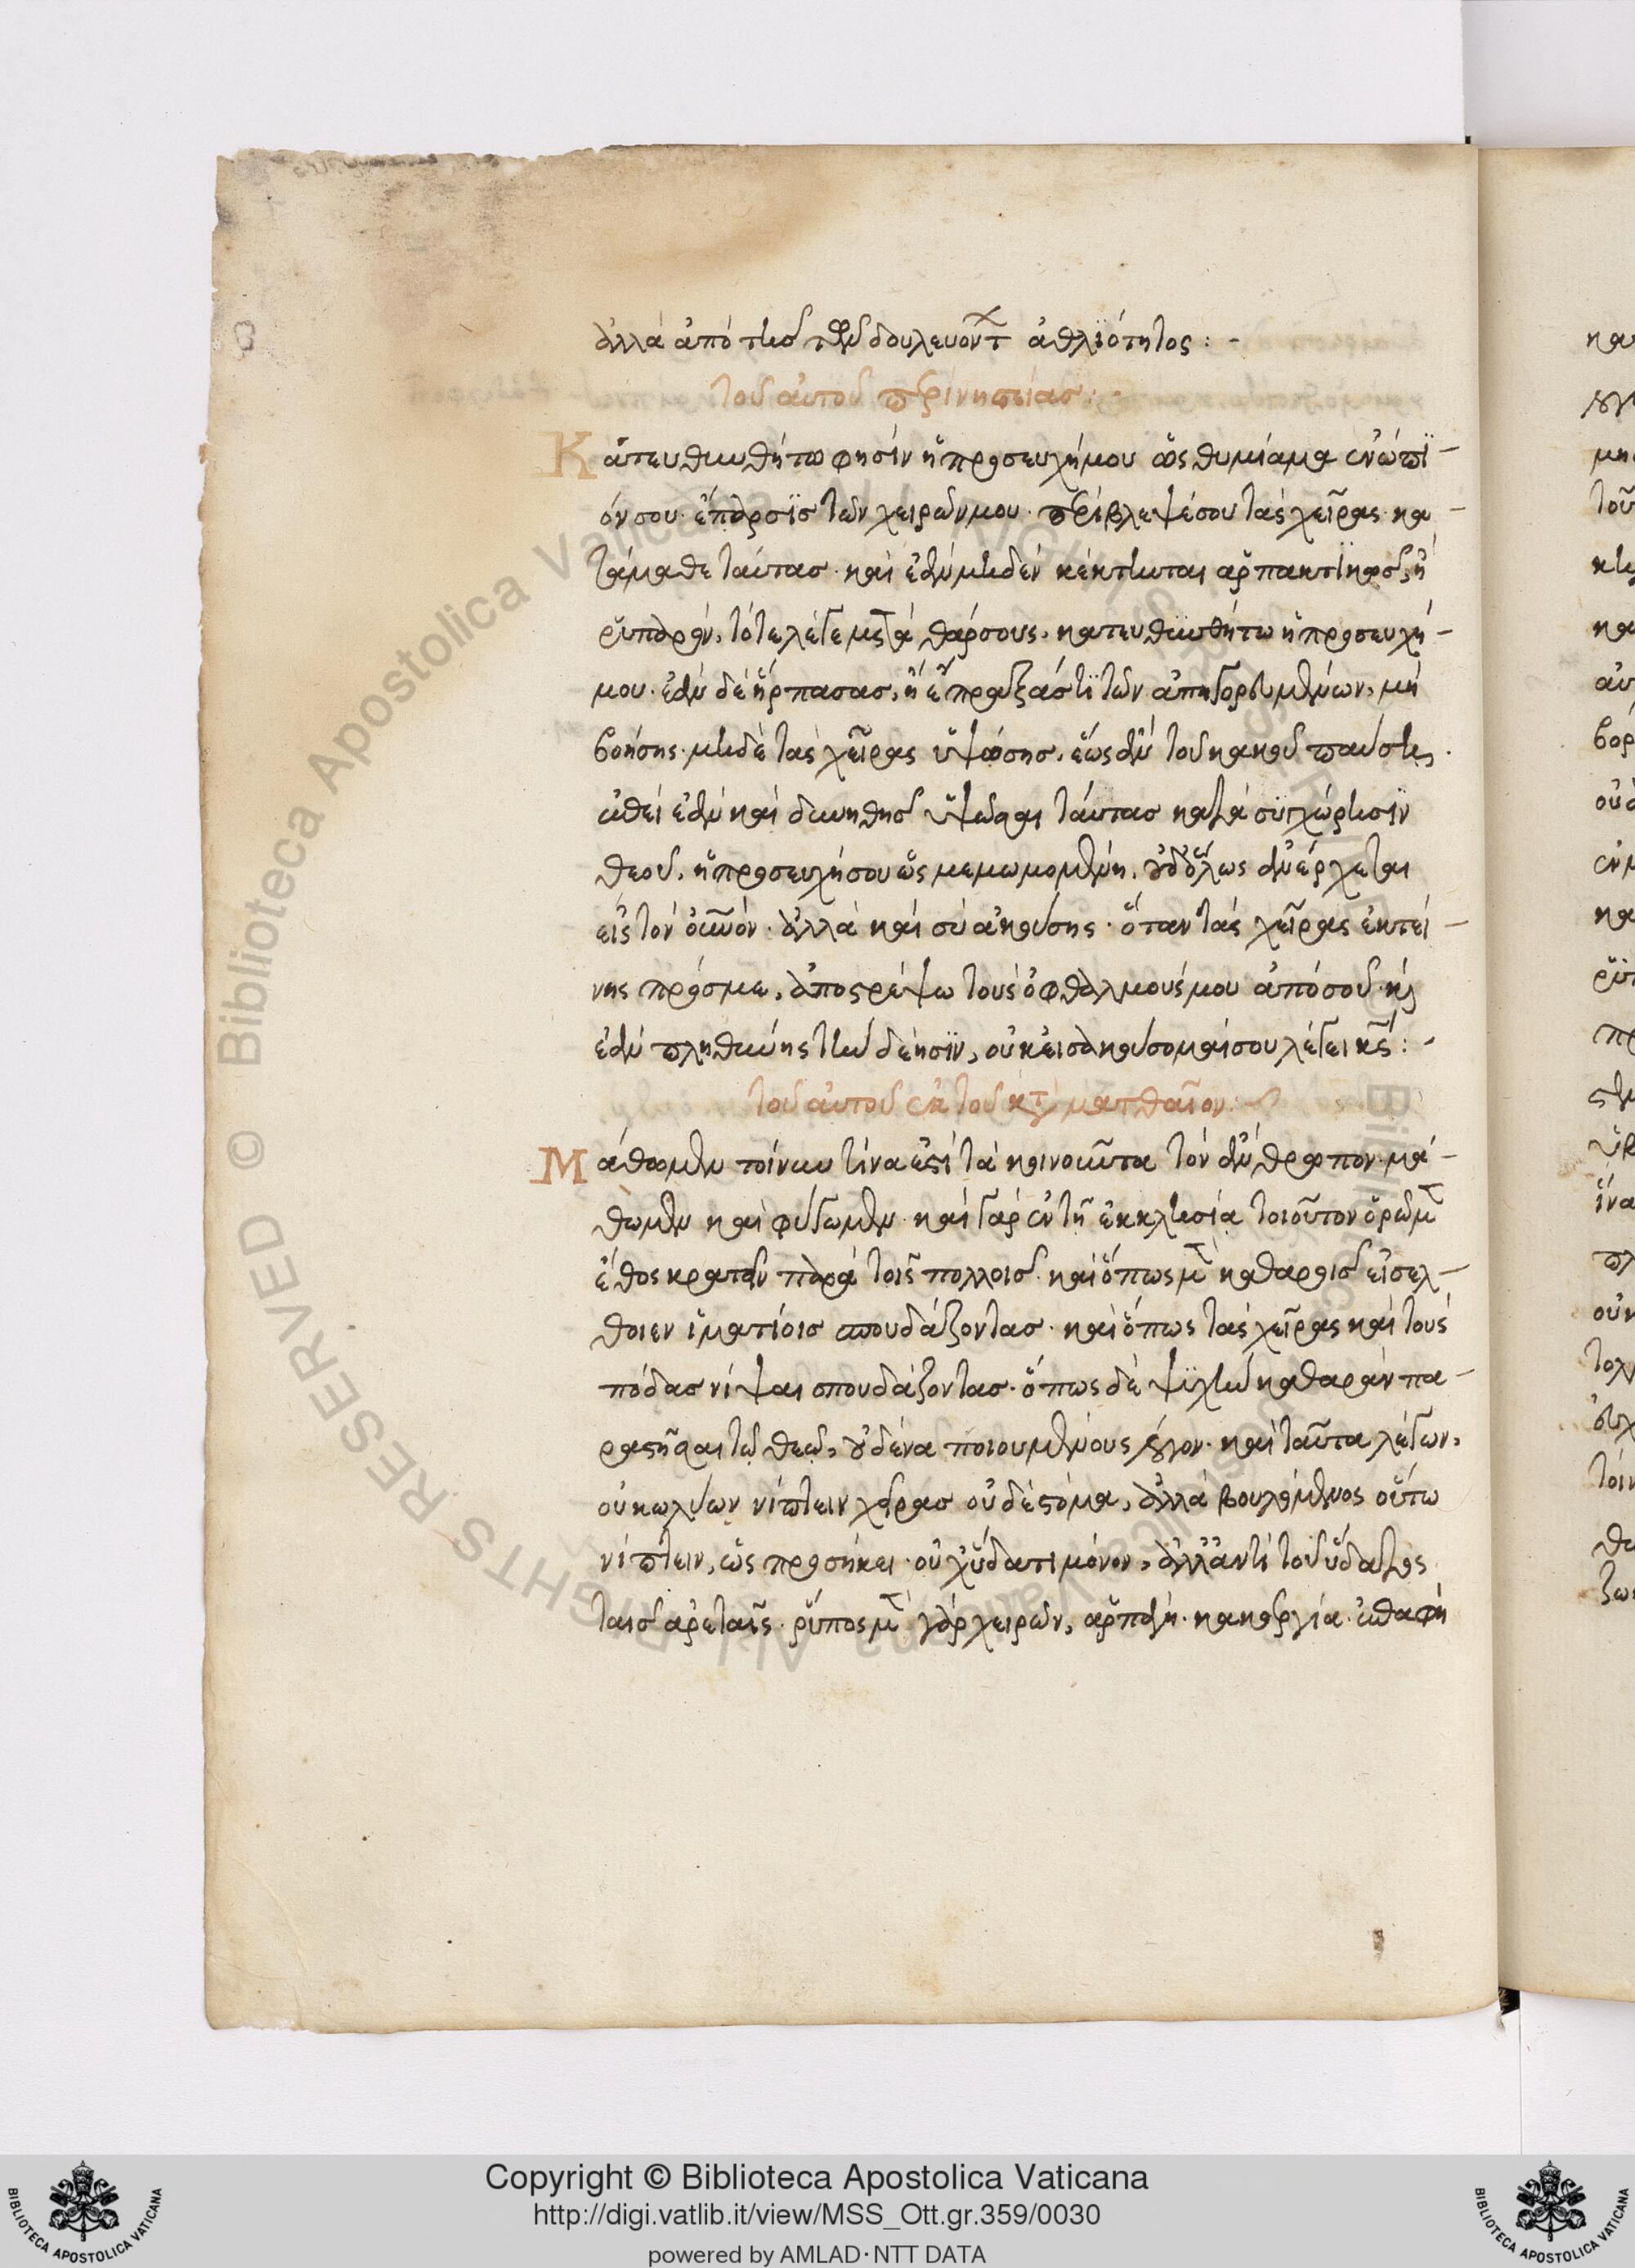 ἀλλὰ ἀπὸ τῆς τῶν δουλευόντ ἀθλϊότητος : -
τοῦ αὐτοῦ περὶ νηστείας : -
Κατευθυνθήτω φησὶν ἡ προσευχή μου ὡς θυμίαμα ἐνώπϊ -
όν σου · ἔπαρσϊς τῶν χειρῶν μου · περίβλεψέ σου τὰς χεῖρας · κα -
τάμαθε ταύτας · καὶ ἐὰν μηδὲν κέκτηνται ἁρπακτϊκὸν, ἢ
ῥυπαρὸν, τότε λέγε μετὰ θάρσους, κατευθυνθήτω ἡ προσευχή -
μου · ἐὰν δὲ ἥρπασας, ἢ ἔπραξάς τϊ τῶν ἀπηγορευμένων, μὴ
βοήσης · μηδὲ τὰς χεῖρας ὑψώσης, ἕως ἂν τοῦ κακοῦ παύση ·
ἐπεὶ ἐὰν καὶ δυνηθῆς ὑψῶσαι ταύτας κατὰ συγχώρησϊν
θεοῦ, ἡ προσευχή σου ὡς μεμωμομένη, οὐδόλως ἀνέρχεται
εἰς τὸν οὐνὸν · ἀλλὰ καὶ σὺ ἀκούσης · ὅταν τὰς χεῖρας ἐκτεί -
νης πρός με, ἀποστρέψω τοὺς ὀφθαλμούς μου ἀπὸ σοῦ · κ
ἐὰν πληθύνης τὴν δέησϊν, οὐκ εἰσακούσομαί σου λέγει κς : -
τοῦ αὐτοῦ ἐκ τοῦ κατὰ ματθαῖον : ~
Μάθωμεν τοίνυν τίνα ἐστὶ τὰ κοινοῦντα τὸν ἄνθρωπον · μά -
θωμεν καὶ φύγωμεν · καὶ γὰρ ἐν τῆ ἐκκλησία τοιοῦτον ὁρῶμ
ἔθος κρατοῦν παρὰ τοῖς πολλοῖς · καὶ ὅπως μ καθαροῖς εἰσέλ -
θοιεν ἱματίοις σπουδάζοντας · καὶ ὅπως τὰς χεῖρας καὶ τοὺς
πόδας νίψαι σπουδάζοντας · ὅπως δὲ ψϋχὴν καθαρὰν πα -
ραστῆσαι τῷ θεῷ, οὐδένα ποιουμένους λόγον · καὶ ταῦτα λέγων,
οὐ κωλύων νίπτειν χεῖρας οὐδὲ στόμα, ἀλλὰ βουλόμενος οὕτω
νίπτειν, ὡς προσῆκει · οὐχ ὕδατι μόνον, ἀλλ ἀντὶ τοῦ ὕδατος
ταῖς ἀρεταῖς · ῥύπος μ γὰρ χειρῶν, ἁρπαγή · κακουργία · ἐπαφὴ
Copyright © Biblioteca Apostolica Vaticana
http://digi.vatlib.it/view/MSS_Ott.gr.359/0030
powered by AMLAD·NTT DATA
BIBLIOTECA APOSTOLICA VATICANA
BIBLIOTECA APOSTOLICA VATICANA